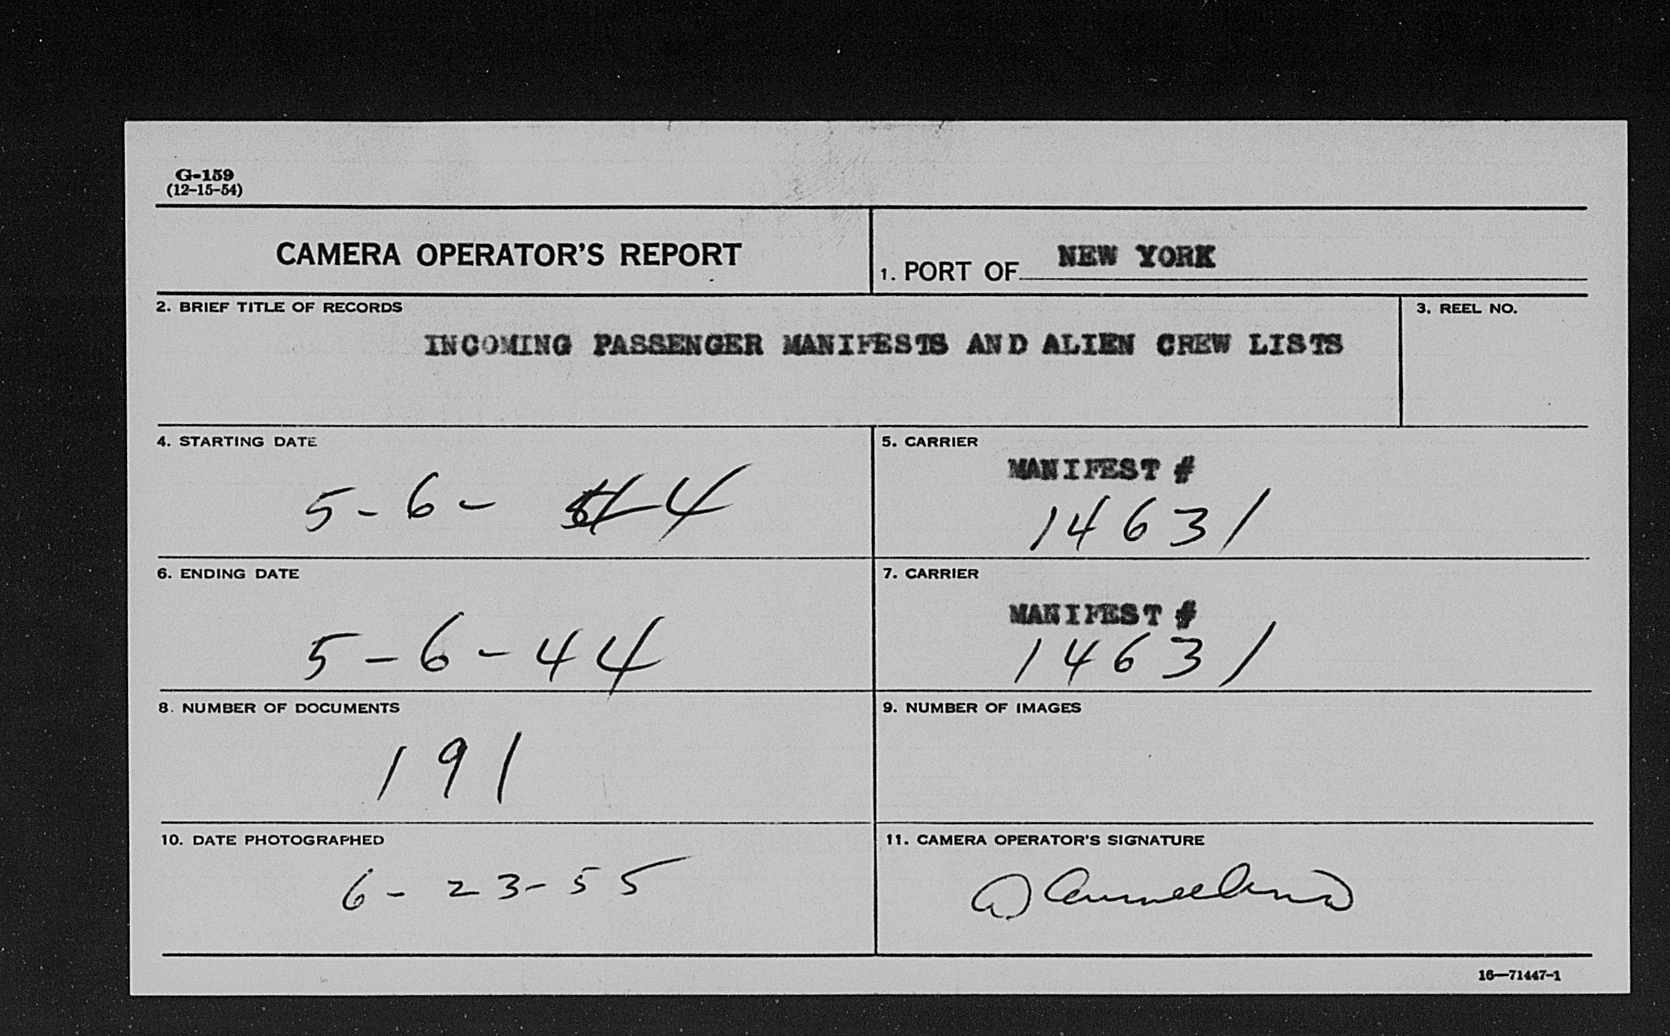 G-159
(12-15-54)
CAMERA OPERATOR'S REPORT
1. PORT OF NEW YORK
2. BRIEF TITLE OF RECORDS
INCOMING PASSENGER MANIFESTS AND ALIEN CREW LISTS
3. REEL NO.
4. STARTING DATE
5-6-44
5. CARRIER
MANIFEST #
14631
6. ENDING DATE
5-6-44
7. CARRIER
MANIFEST #
14631
8. NUMBER OF DOCUMENTS
191
9. NUMBER OF IMAGES
10. DATE PHOTOGRAPHED
6-23-55
11. CAMERA OPERATOR'S SIGNATURE
16—71447-1